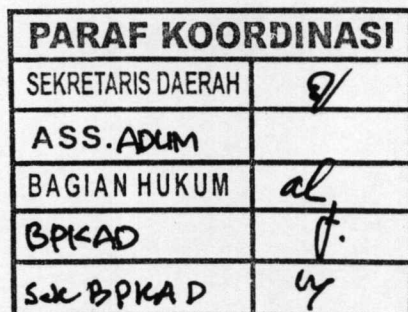 PARAF KOORDINASI
SEKRETARIS DAERAH
ASS. ADUM
BAGIAN HUKUM
BPKAD
Sek BPKAD